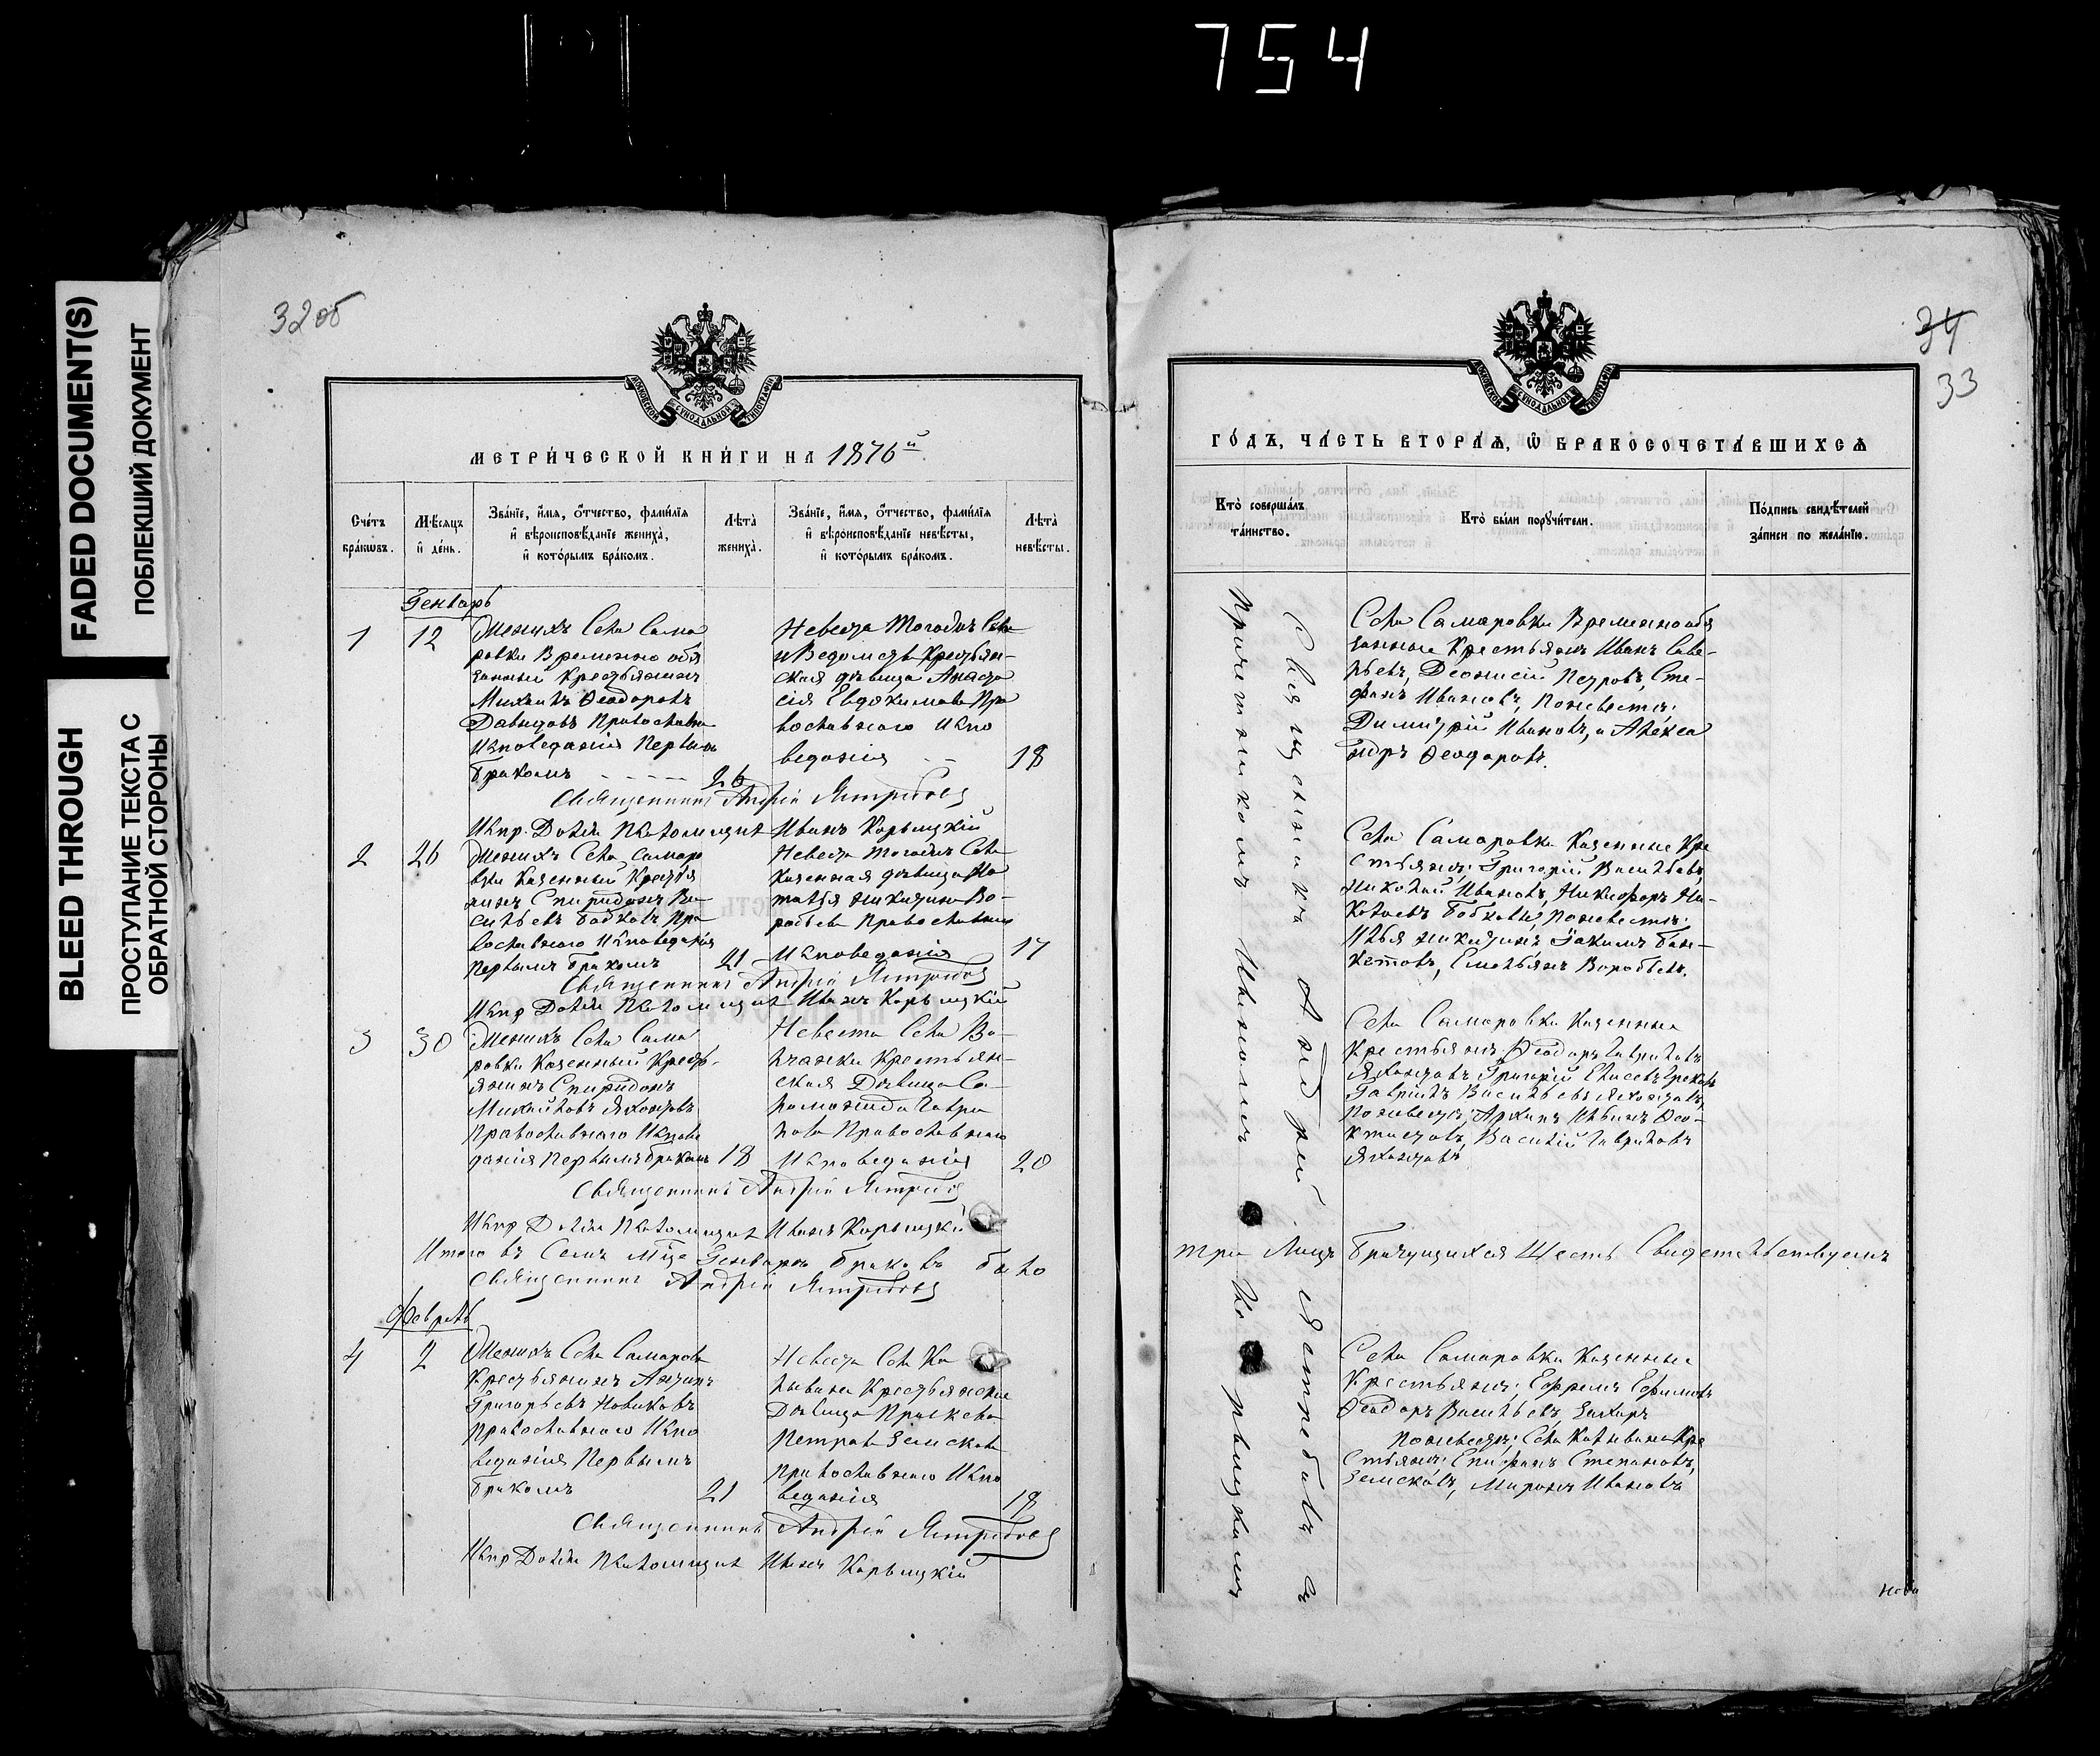 754
FADED DOCUMENT(S)
ПОБЛЕКШИЙ ДОКУМЕНТ
BLEED THROUGH
ПРОСТУПАНИЕ ТЕКСТА С
ОБРАТНОЙ СТОРОНЫ
32 об
МЕТРИ́ЧЕСКОЙ КНИ́ГИ НА 1876й
Сче́тъ бра́кѡвъ.
Мѣ́сяцъ и де́нь.
Зва́нїе, и́мя, о́тчество, фами́лїя и вѣроисповѣ́данїе жениха̀, и кото́рымъ бра́комъ.
Лѣта̀ жениха̀.
Зва́нїе, и́мя, о́тчество, фами́лїя и вѣроисповѣ́данїе невѣ́сты, и кото́рымъ бра́комъ.
Лѣта̀ невѣ́сты.
Генварь
1
12
Женихъ Села Сама
ровки Временно обя
занный Крестьянинъ
Михаилъ Ѳеодоровъ
Давыдовъ Православна
Исповеданія Первымъ
бракомъ
26
Невеста Тогожъ Села
и Ведомста Крестьян-
ская девица Анаста
сія Евдокимова Пра
вославнаго Испо
веданія
18
Священникъ Андрей Ястребовъ
Испр. Долж. Псаломщика Иванъ Карыцкій
2
26
Женихъ Села Самаро
вки Казенный Крестья
нинъ Спиридонъ Ва
сильевъ Бобковъ Пра
вославнаго Исповеданія
Первымъ бракомъ
21
Невеста тогожъ Села
Казенная девица На
талья Никитина Во-
робьева Православнаго
Исповеданія
17
Священникъ Андрей Ястребовъ
Испр Долж Псаломщика Иванъ Карыцкій
3
30
Женихъ Села Сама
ровки Казенный Кресть-
янинъ Спиридонъ
Михайловъ
Православнаго Испове
данія Первымъ бракомъ
18
Невеста Села Во-
лчанки Крестьян-
ская Девица Со-
ломонида Гаври
лова Православнаго
Исповеданія
20
Священникъ Андрей Ястребовъ
Испр Долж Псаломщика Иванъ Карыцкій
Итого въ Семъ М҃це Генваре браковъ было
Священникъ Андрей Ястребовъ
Февраль
4
2
Женихъ Села Самаровки
Крестьянинъ Антонъ
Григорьевъ Новиковъ
Православнаго Испо
веданія Первымъ
бракомъ
21
Невеста Села Ка
лывана Крестьянская
Девица Праскева
Петрова Земскова
Православнаго Испо
веданія
18
Священникъ Андрей Ястребовъ
Испр Долж Псаломщика Иванъ Карыцкій
34
33
ГО́ДЪ, ЧА́СТЬ ВТОРА́Я, Ѡ БРАКОСОЧЕТА́ВШИХСЯ
Кто̀ соверша́лъ та́инство.
Кто̀ бы́ли поручи́тели.
По́дпись свидѣ́телей за́писи по жела́нїю.
Священникъ Андрей Ястребовъ съ
Причетникомъ Иваномъ Карыцкимъ
Села Самаровки Временнообя
занные Крестьяне Иванъ Саве-
льевъ, Деонисій Петровъ, Сте-
фанъ Ивановъ, Поневесте:
Димитрій Ивановъ, и Алекса
ндръ Ѳеодоровъ.
Села Самаровки Казенные Кре
стьяне: Григорій Васильевъ,
Николай Ивановъ, Никифоръ Ни-
колаевъ Бобковы, поневесте:
Илья Никитинъ Іакимъ
Емельянъ Воробьевъ.
Села Самаровки Казенные
Крестьяне: Ѳеодоръ Гавриловъ
Григорій Елисевъ
Гавріилъ Васильевъ
Поневесте: Архипъ Ильинъ Ѳео-
Василій Гавриловъ
три Лицъ Брачущихся Шесть Свидетельствуемъ
Села Самаровки Казенные
Крестьяне: Ефремъ Ефимовъ
Ѳеодоръ Васильевъ, Захаръ
поневесте: Села Калывана Кре
стьяне: Епифанъ Степановъ,
Земсковъ, Миронъ Ивановъ